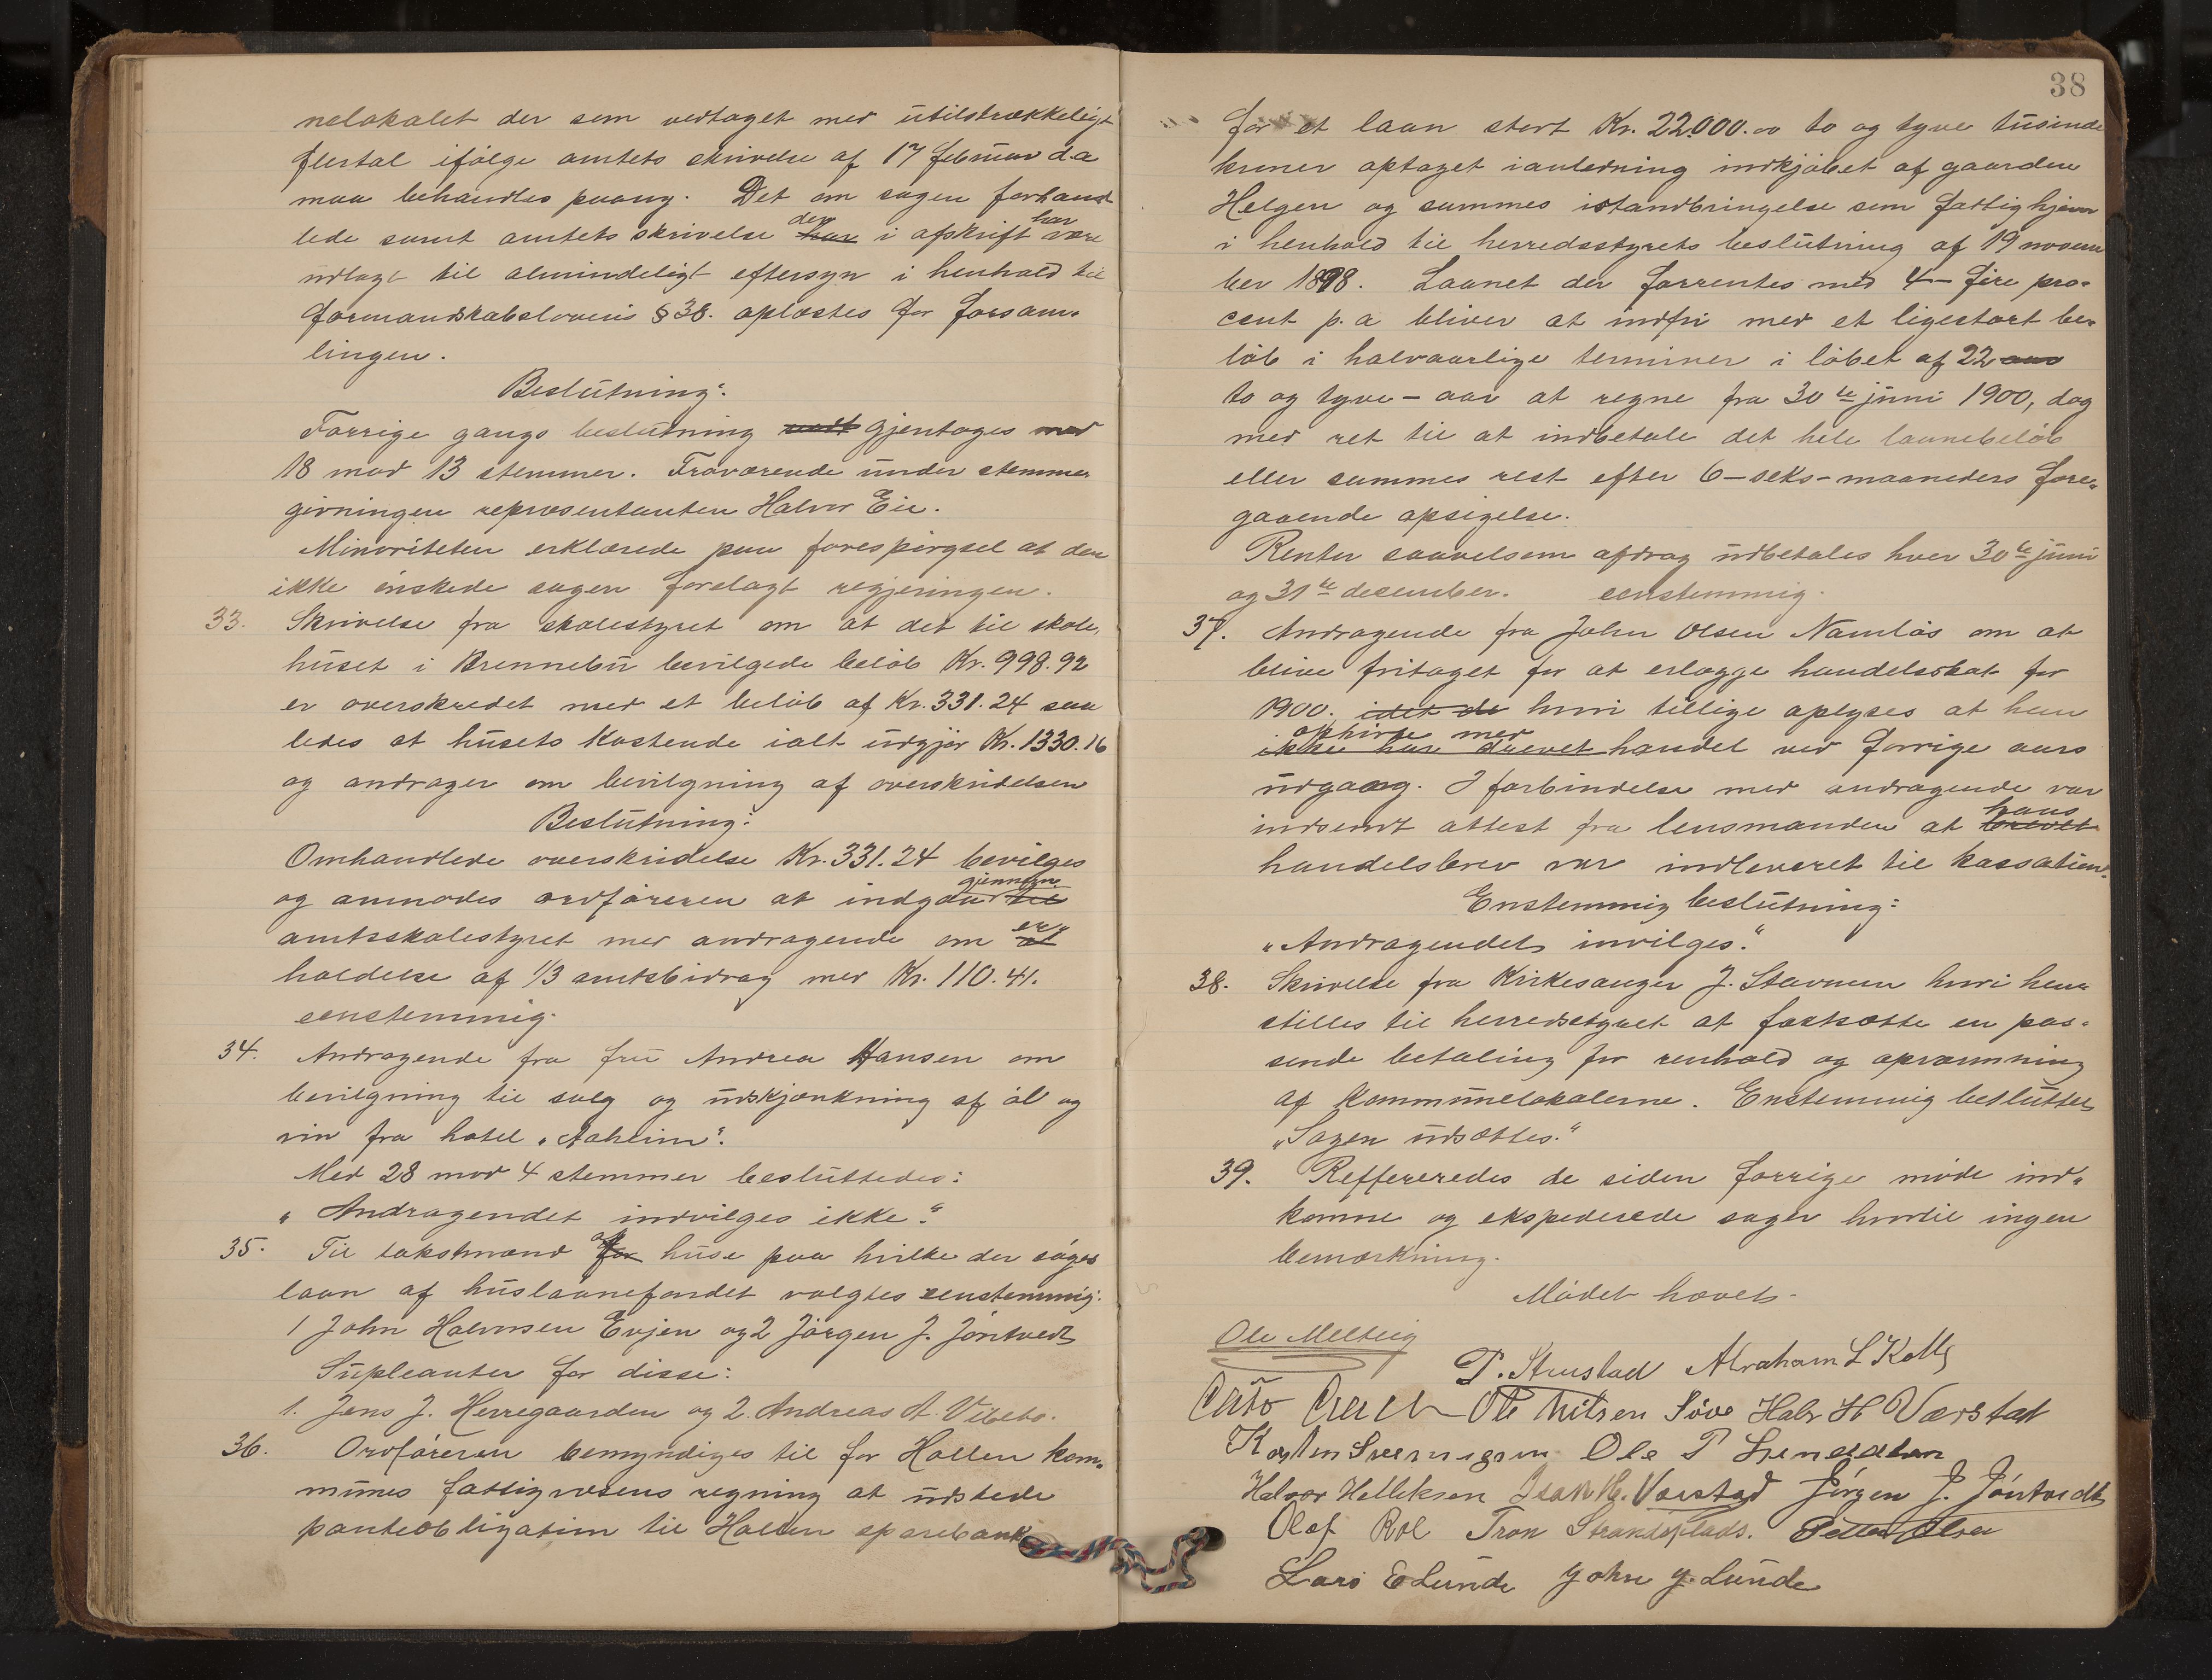 nelokalet der som vedtaget med utilstrækkeligt
flertal ifølge amtets skrivelse af 17 februar d.a
maa behandles paany. Det om sagen forhand
lede samt amtets skrivelse der i afskrift har være
udlagt til almindeligt eftersyn i henhold til
formandskabslovens § 38. oplæstes for forsam-
lingen.
Beslutning:
Forrige gangs beslutning gjentages med
18 mod 13 stemmer. Fraværende under stemme-
givningen repræsentanten Halvor Eie.
Minoriteten erklærede paa forespørgsel at den
ikke ønskede sagen forelagt regjeringen.
33. Skrivelse fra skolestyret om at det til skole-
huset i Brennebu bevilgede beløb Kr. 998.92
er overskredet med et beløb af Kr. 331.24 saa
ledes at husets kostende ialt udgjør Kr. 1330.16
og andrager om bevilgning af overskridelsen
Beslutning:
Omhandlede overskridelse Kr. 331.24 bevilges
og anmodes ordføreren at indgaa gjennem
amtsskolestyret med andragende om er-
holdelse af 1/3 amtsbidrag med Kr. 110.41.
eenstemmig.
34. Andragende fra fru Andrea Hansen om
bevilgning til salg og udskjænkning af øl og
vin fra hotel "Aaheim".
Med 28 mod 4 stemmer besluttedes:
"Andragendet indvilges ikke."
35. Til takstmænd af huse paa hvilke der søges
laan af huslaanefondet valgtes eenstemmig.
1 John Halvorsen Evjen og 2 Jørgen J. Jøntvedt
Supleanter for disse:
1. Jens J. Herregaarden og 2. Andreas A. Vibeto.
36. Ordføreren bemyndiges til for Hollen kom-
munes fattigvæsens regning at udstede
panteobligation til Hollen sparebank
38
for et laan stort Kr. 22000.00 to og tyve tusinde
kroner optaget ianledning indkjøbet af gaarden
Helgen og sammes istandbringelse som fattighjem
i henhold til herredsstyrets beslutning af 19 novem
ber 1898. Laanet der forrentes med 4 - fire pro-
cent p.a bliver at indfri med et ligestort be-
løb i halvaarlige terminer i løbet af 22 aar
to og tyve - aar at regne fra 30te juni 1900, dog
med ret til at indbetale det hele laanebeløb
eller sammes rest efter 6 - seks - maaneders fore-
gaaende opsigelse.
Renter saavelsom afdrag udbetales hver 30te juni
og 31te december. eenstemmig.
37. Andragende fra John Olsen Namløs om at
blive fritaget for at erlægge handelsskat for
1900. idet de hvori tillige oplyses at han
ophørte med ikke har drevet handel ved forrige aars
udgang. I forbindelse med andragende var
indsendt attest fra lensmanden at hans
handelsbrev var indleveret til kassation.
Enstemmig beslutning:
"Andragendet invilges."
38. Skrivelse fra Kirkesanger J. Stavnum hvori hen-
stilles til herredsstyret at fastsætte en pas-
sende betaling for renhold og opvarmning
af kommunelokalerne. Enstemmig besluttet
"Sagen udsættes."
39. Reffereredes de siden forrige møde ind-
komne og ekspederede sager hvortil ingen
bemærkning.
Mødet hævet.
Ole Melteig
P. Strustad Abraham L Kaasa
Ole Nilsen Søve Halv H Værstad
Ole P
Halvor Helleksen Isak H. Værstad Jørgen J. Jøntvedt
Olaf Tron Strandsplads. Petter Olsen
Lars E Lunde John J. Lunde